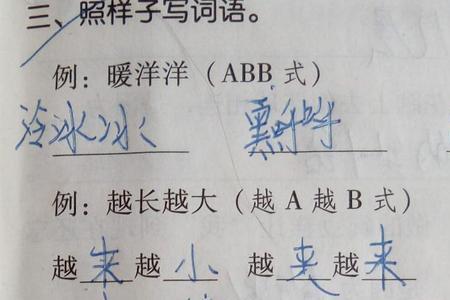 三、照样子写词语。
例：暖洋洋（ABB 式）
冷冰冰 黑
例：越长越大（越 A 越 B 式）
越来越小 越越来